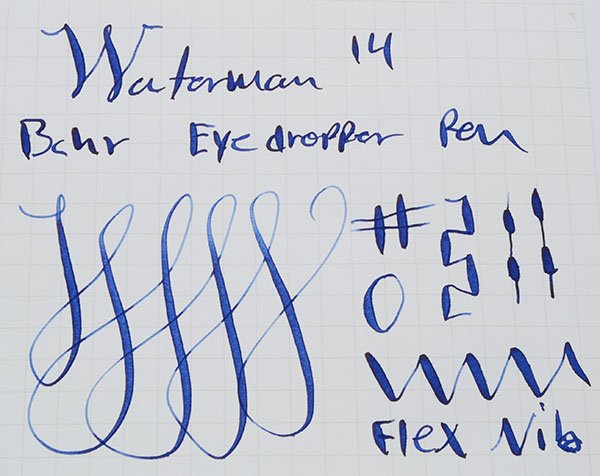 Waterman '14
Bchr Eyedropper Pen
Flex Nib